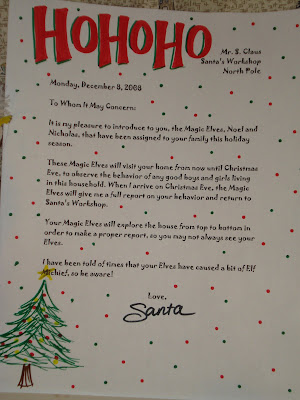 HOHOHO
Mr. S. Claus
Santa's Workshop
North Pole
Monday, December 8, 2008
To Whom It May Concern:
It is my pleasure to introduce to you, the Magic Elves, Noel and
Nicholas, that have been assigned to your family this holiday
season.
These Magic Elves will visit your home from now until Christmas
Eve, to observe the behavior of any good boys and girls living
in this household. When I arrive on Christmas Eve, the Magic
Elves will give me a full report on your behavior and return to
Santa's Workshop.
Your Magic Elves will explore the house from top to bottom in
order to make a proper report, so you may not always see your
Elves.
I have been told of times that your Elves have caused a bit of Elf
Mischief, so be aware!
Love,
Santa